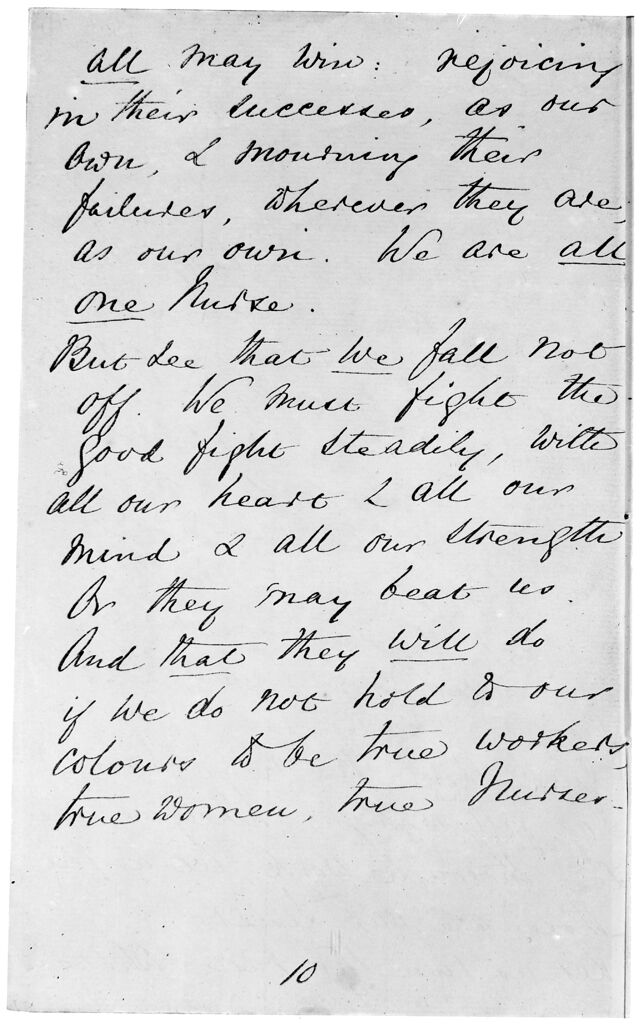 all may win: rejoicing
in their successes, as our
own, & mourning their
failures, wherever they are,
as our own. We are all
one Nurse.
But see that we fall not
off. We must fight the
good fight steadily, with
all our heart & all our
mind & all our strength
Or they may beat us.
And that they will do
if we do not hold to our
colours to be true workers,
true women, true Nurses -
10